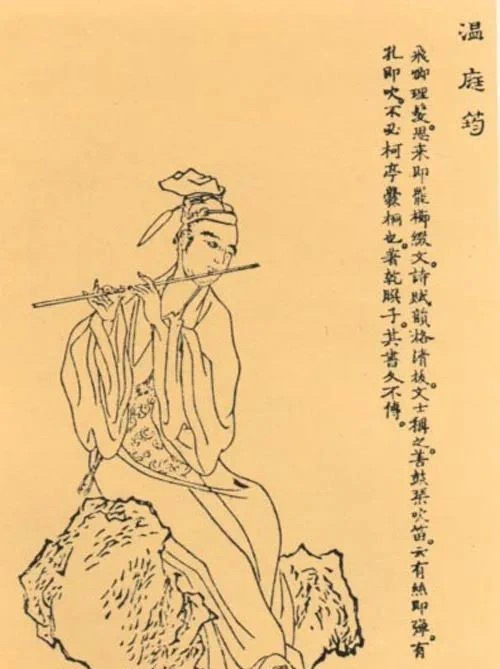 温庭筠
飛卿理髮思来即罷櫛綴文詩賦韻格清拔文士稱之善鼓琴吹笛云有絲即彈有
孔即吹不必柯亭爨桐也著乾𦠆子其書久不傳